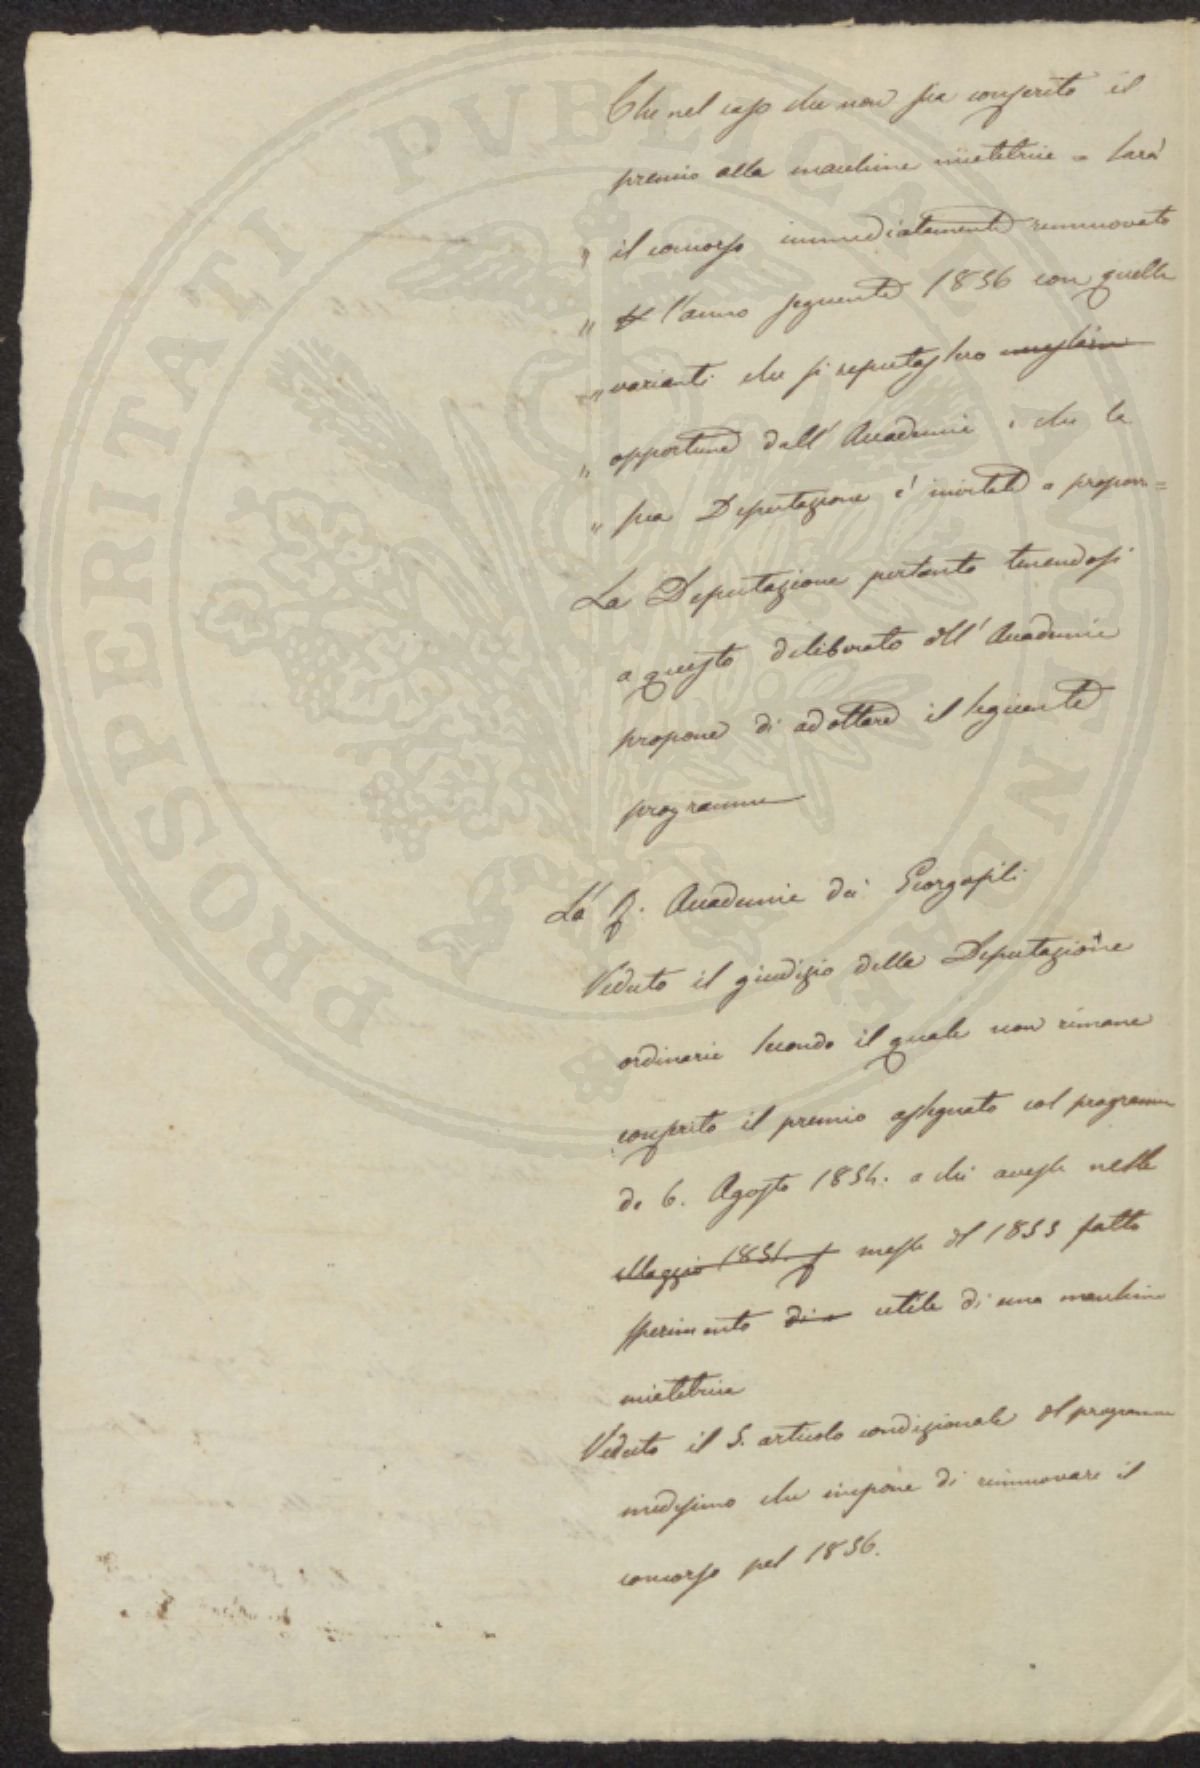 Che nel caso che non sia conferito il
premio alla macchina mietitrice - sarà
" il concorso immediatamente rinnuovato
" l'anno seguente 1856 con quelle
" varianti che si reputassero
" opportune dall'Accademia, che la
" sua Deputazione è invitata a propor=
La Deputazione pertanto tenendosi
a questo deliberato dell'Accademia
propone di adottare il seguente
programma
La R. Accademia dei Georgofili
Veduto il giudizio della Deputazione
ordinaria secondo il quale non rimane
conferito il premio assegnato col programma
de 6. Agosto 1854. a chi avesse nella
Maggio 1851. messe del 1855 fatto
sperimento di a utile di una macchina
mietitrice
Veduto il 5. articolo condizionale del programma
medesimo che impone di rinnuovare il
concorso pel 1856.
PROSPERITATI PVBLICAE AVGENDAE